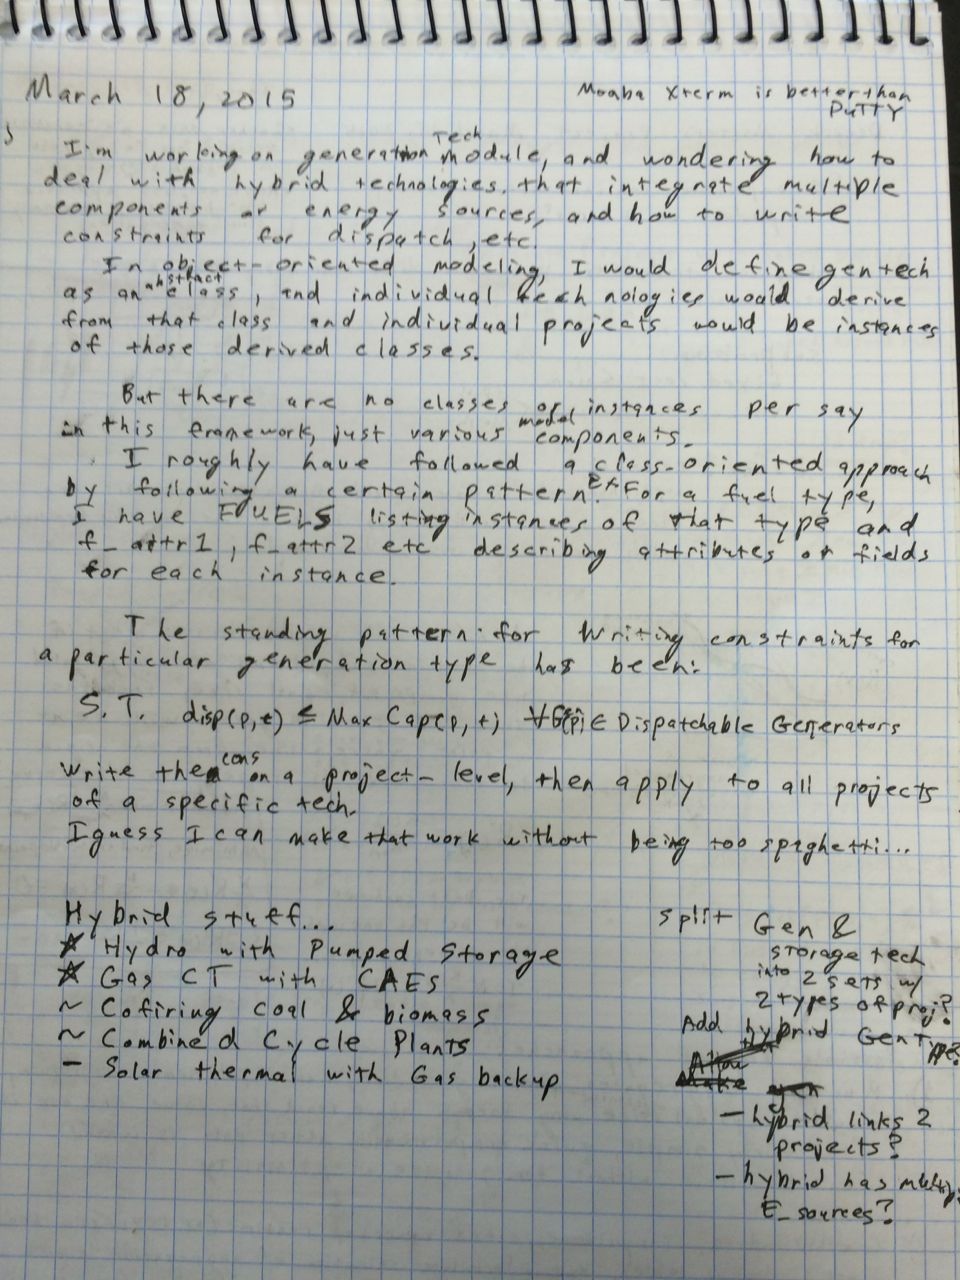 March 18, 2015
Moaba Xterm is better than
PuTTY
I'm working on generation Tech module, and wondering how to
deal with hybrid technologies. that integrate multiple
components or energy sources, and how to write
constraints for dispatch, etc.
In object-oriented modeling, I would define gentech
as an abstract class, and individual technologies would derive
from that class and individual projects would be instances
of those derived classes.
But there are no classes or instances per say
in this framework, just various model components.
I roughly have followed a class-oriented approach
by following a certain pattern. Ex. For a fuel type,
I have FUELS listing instances of that type and
f_attr1, f_attr2 etc describing attributes or fields
for each instance.
The standing pattern for writing constraints for
a particular generation type has been:
S.T. disp(p,t) ≤ Max Cap(p,t) ∀ G(p) ∈ Dispatchable Generators
Write the cons on a project-level, then apply to all projects
of a specific tech.
I guess I can make that work without being too spaghetti...
Hybrid stuff...
★ Hydro with Pumped Storage
★ Gas CT with CAES
~ Cofiring coal & biomass
~ Combined Cycle Plants
– Solar thermal with Gas backup
split Gen &
storage tech
into 2 sets w/
2 types of proj?
Add hybrid GenType?
– hybrid links 2
projects?
– hybrid has
E_sources?